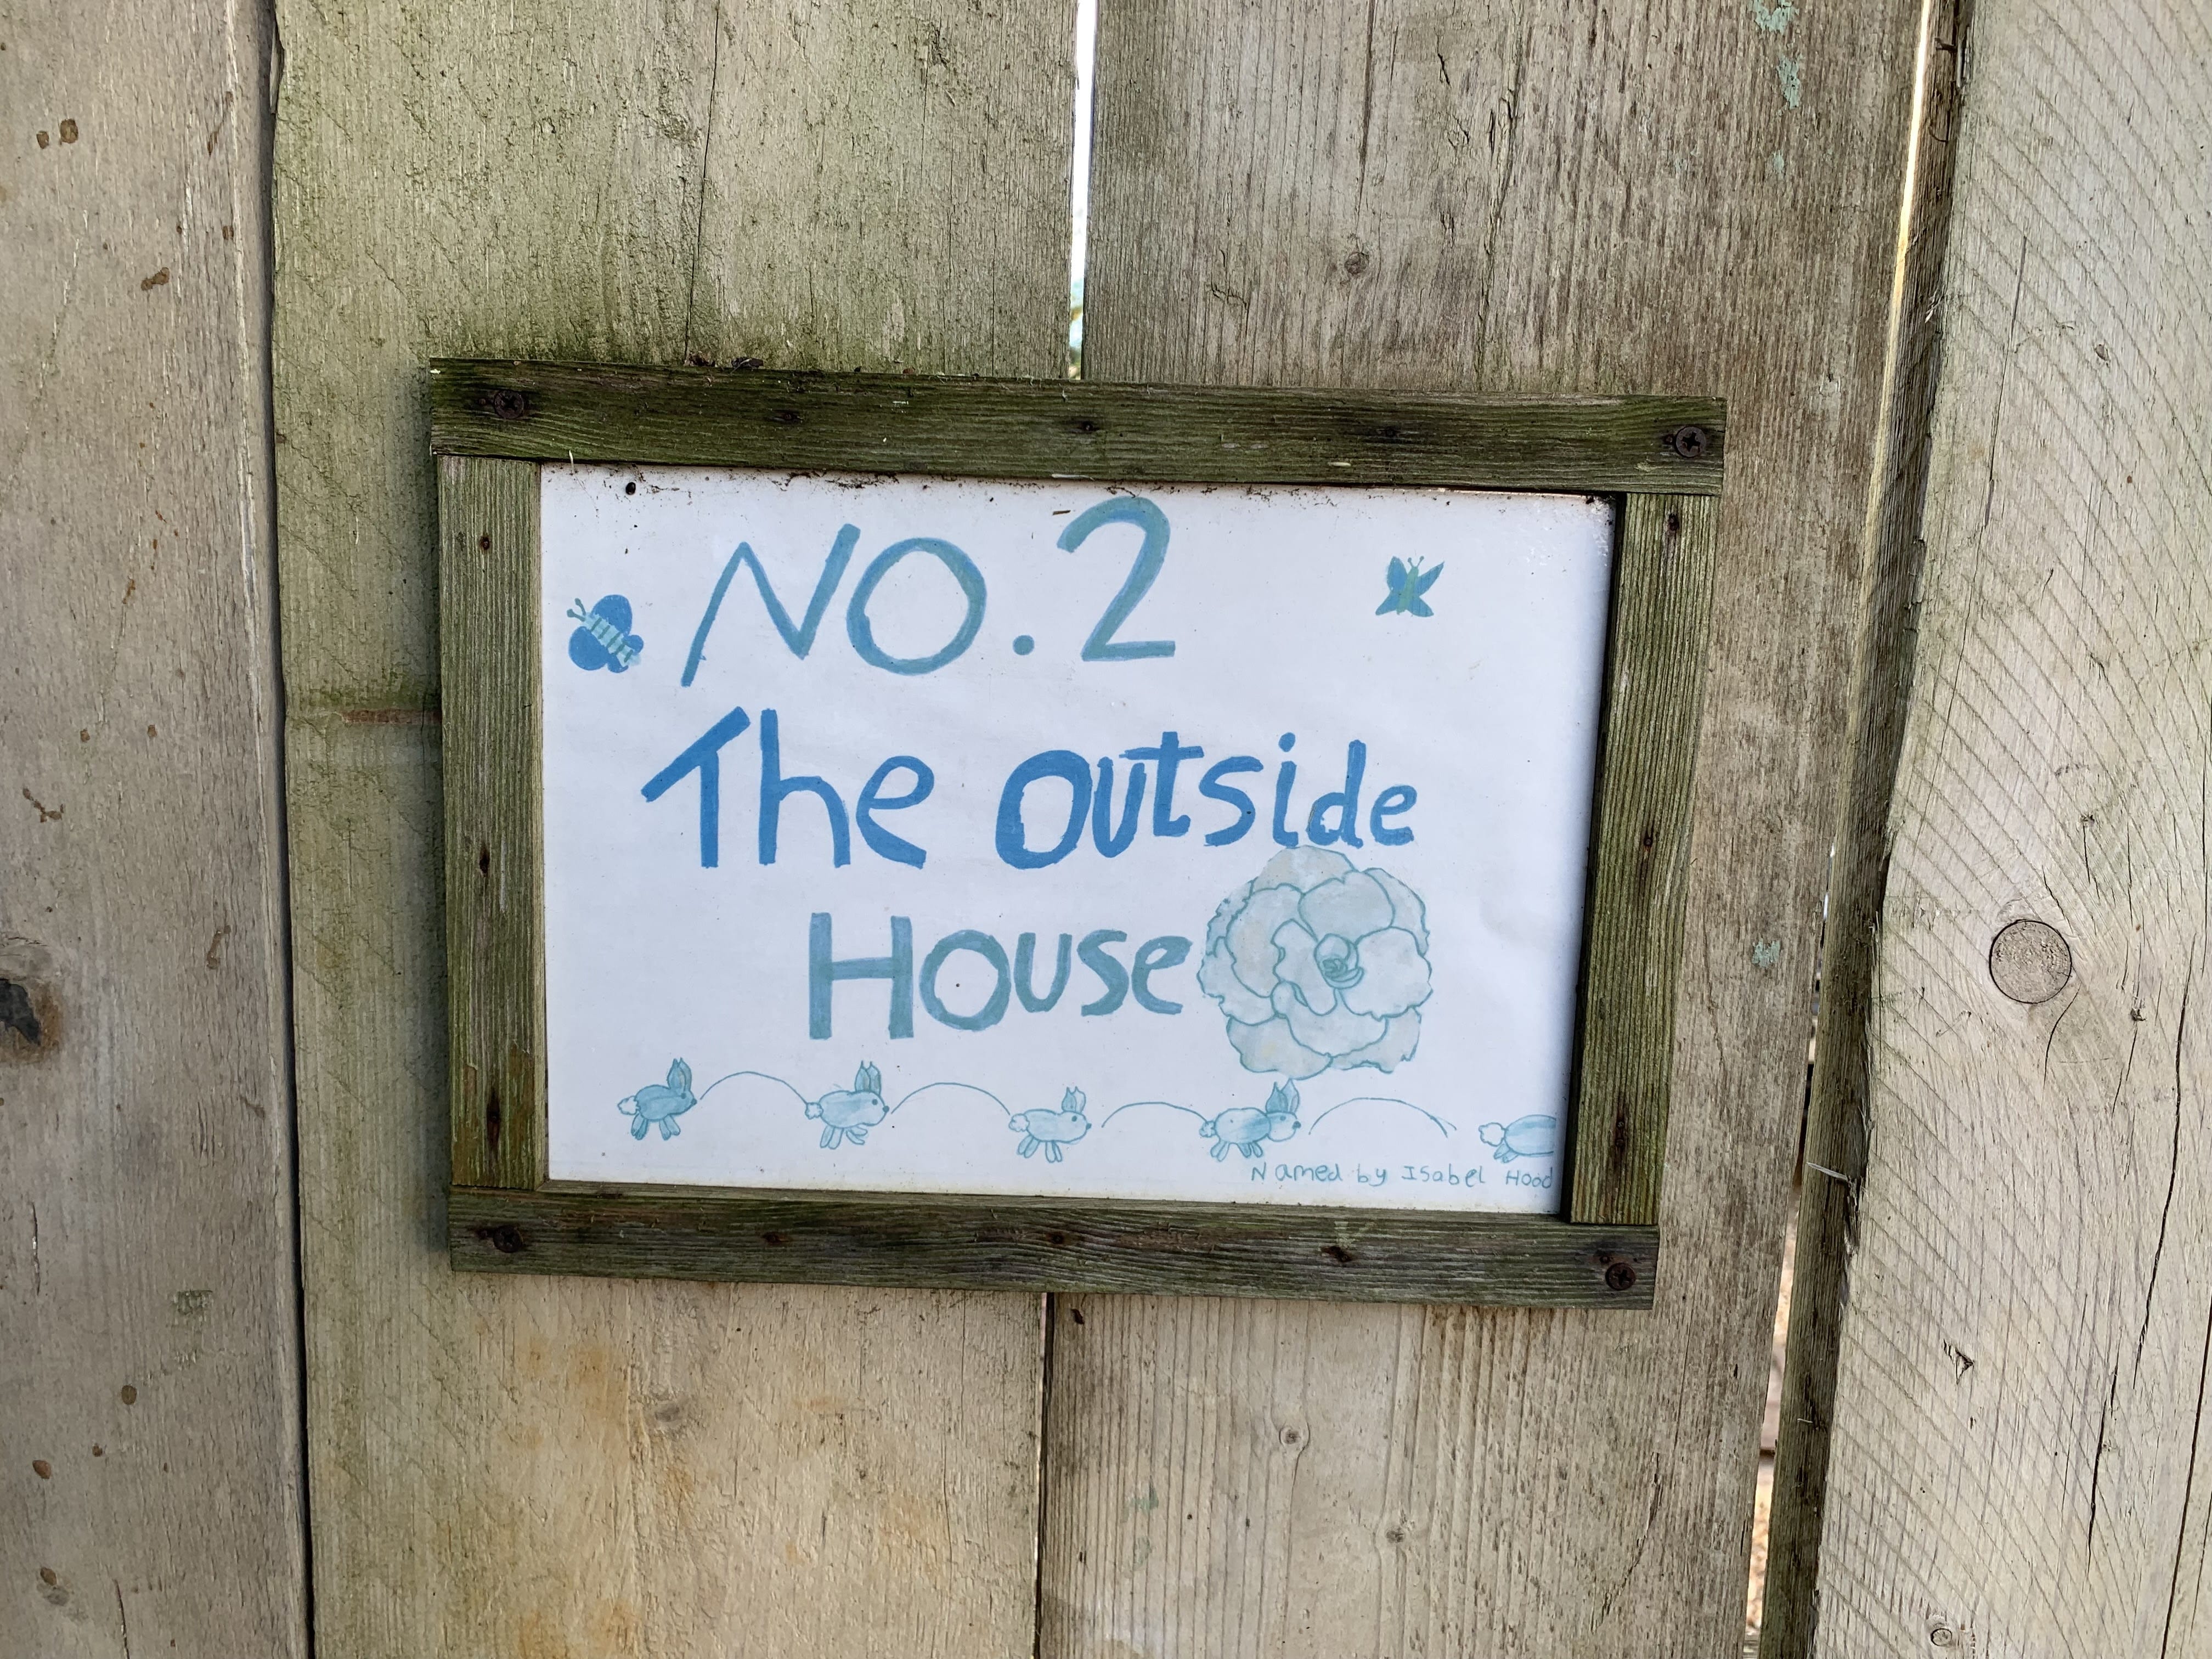 NO. 2
The outside
House
Named by Isabel Hood